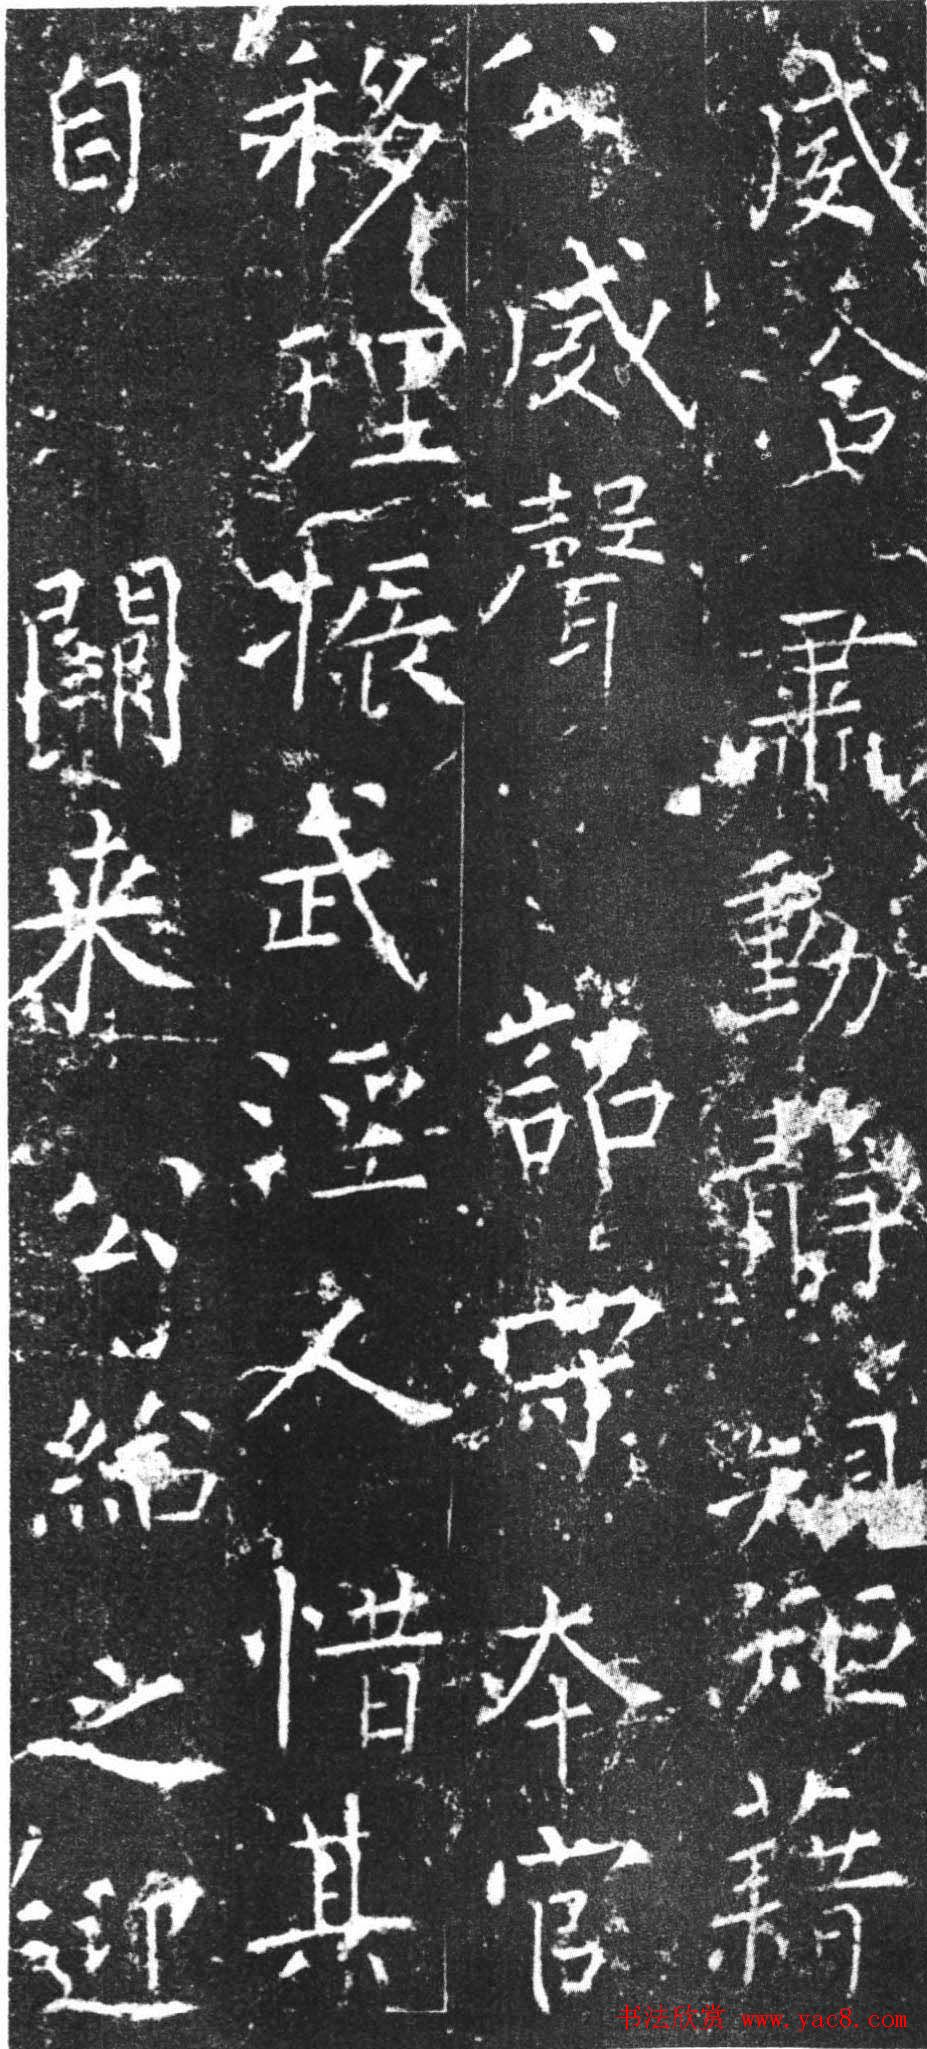 威令肅動靜規矩藉
公威聲詔守本官
移理振武涇人惜其
自關来公給之迎
书法欣赏 www.yac8.com